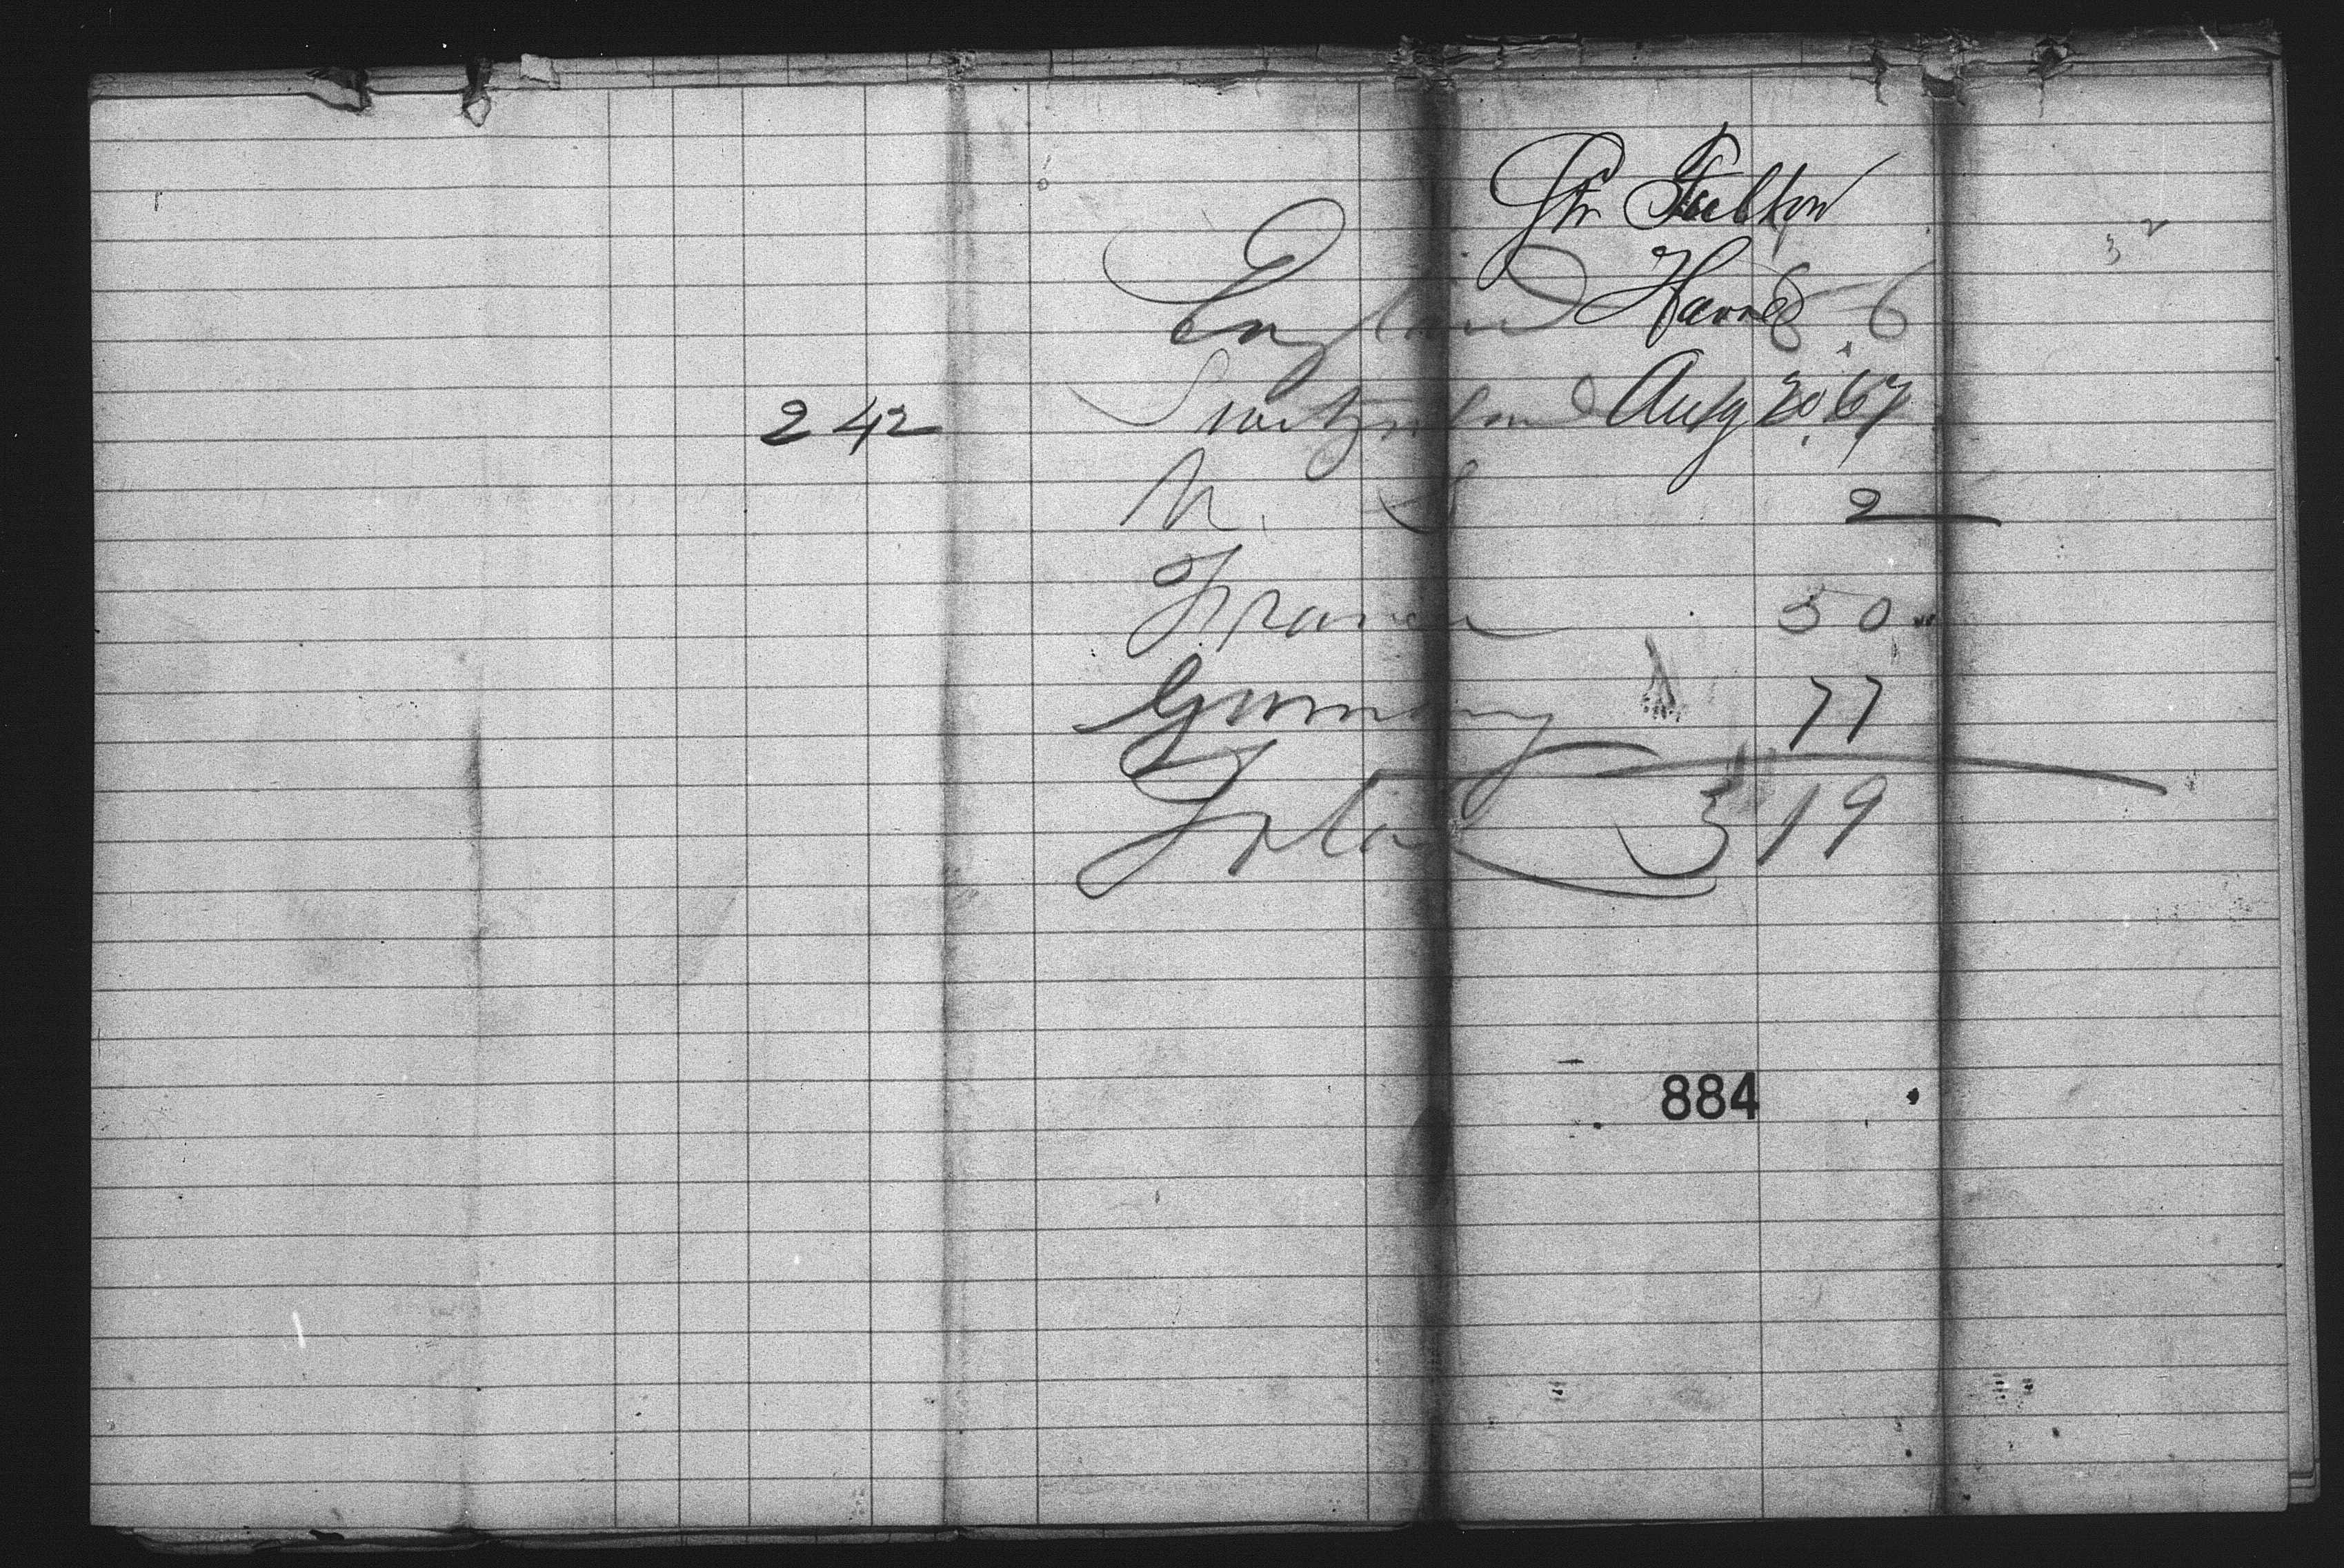 Str Fulton
England Havre 6
Switzerland Aug 20, 67
242
U. S 2
France 50
Germany 77
Total 319
884